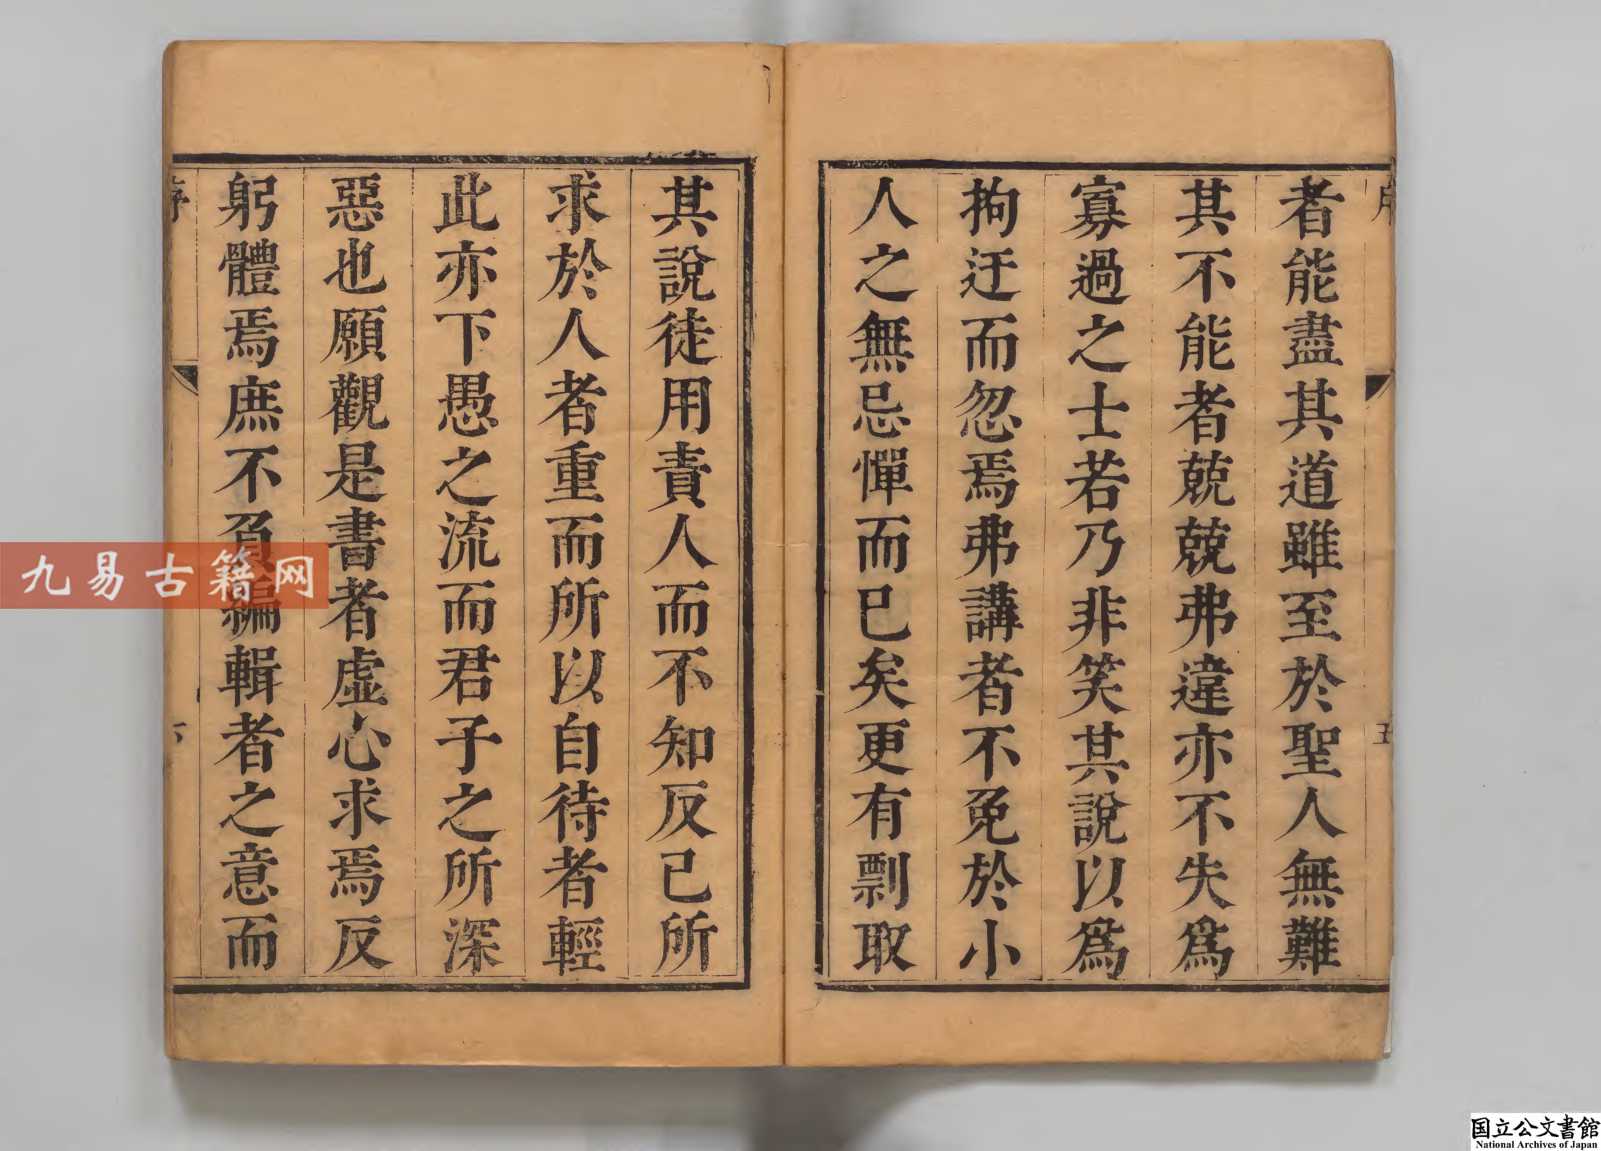 者能盡其道雖至於聖人無難
其不能者兢兢弗違亦不失爲
寡過之士若乃非笑其說以爲
拘迂而忽焉弗講者不免於小
人之無忌憚而已矣更有剽取
五
其說徒用責人而不知反己所
求於人者重而所以自待者輕
此亦下愚之流而君子之所深
惡也願觀是書者虛心求焉反
躬體焉庶不負編輯者之意而
序
九易古籍网
国立公文書館
National Archives of Japan